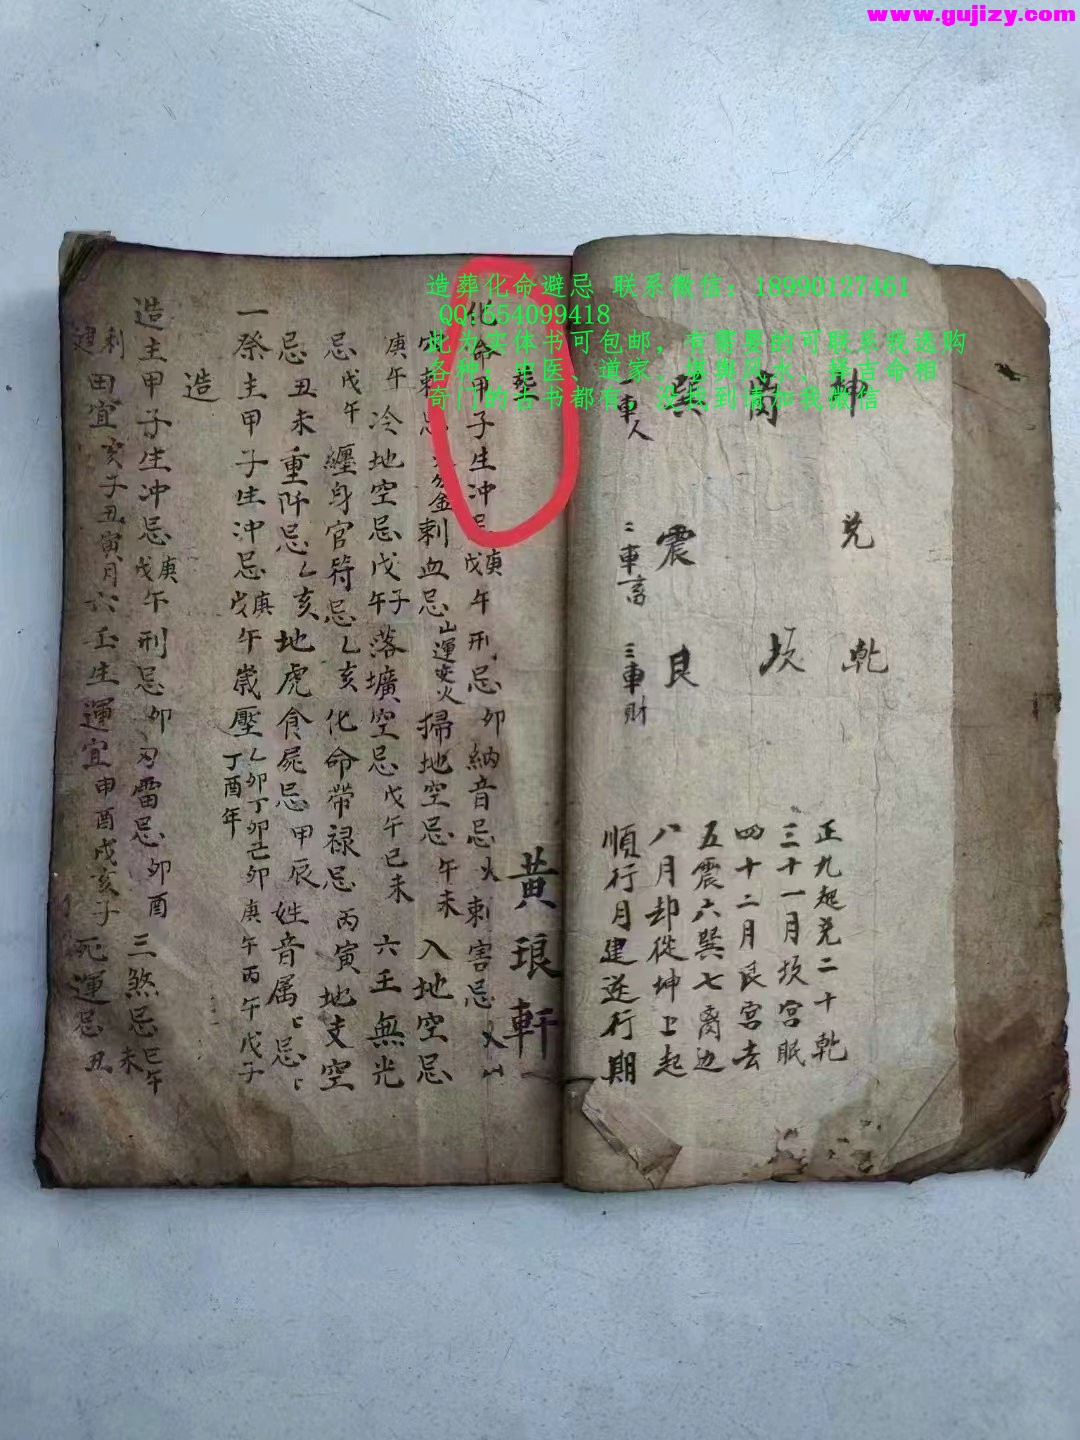 www.gujizy.com
造葬化命避忌 联系微信：18990127461
QQ:554099418
此为实体书可包邮，有需要的可联系我选购
各种：中医、道家、堪舆风水、择吉命相
奇门的古书都有，没找到请加我微信
坤
兑
乾
坎
巽
震
艮
一車人
二車畜
三車財
正九起兑二十乾
三十一月坎宫眠
四十二月艮宫去
五震六巽七离边
八月却從坤上起
順行月建逆行期
葬
黃琅軒
化命甲子生冲忌庚戊午刑忌卯納音忌火刺害忌
金刺血忌山運变火掃地空忌午未入地空忌
庚午冷地空忌戊午子落壙空忌戊午己未六壬無光
忌戊午纏身官符忌乙亥化命带禄忌丙寅地支空
忌丑未重阡忌乙亥地虎食屍忌甲辰姓音属忌
一祭主甲子生冲忌庚戊午歲壓乙卯丁卯己卯丁酉年庚午丙午戊子
造
造主甲子生冲忌庚戊午刑忌卯刃雷忌卯酉三煞忌巳午未
利建田宜亥子丑寅月六壬生運宜申酉戌亥子死運忌丑